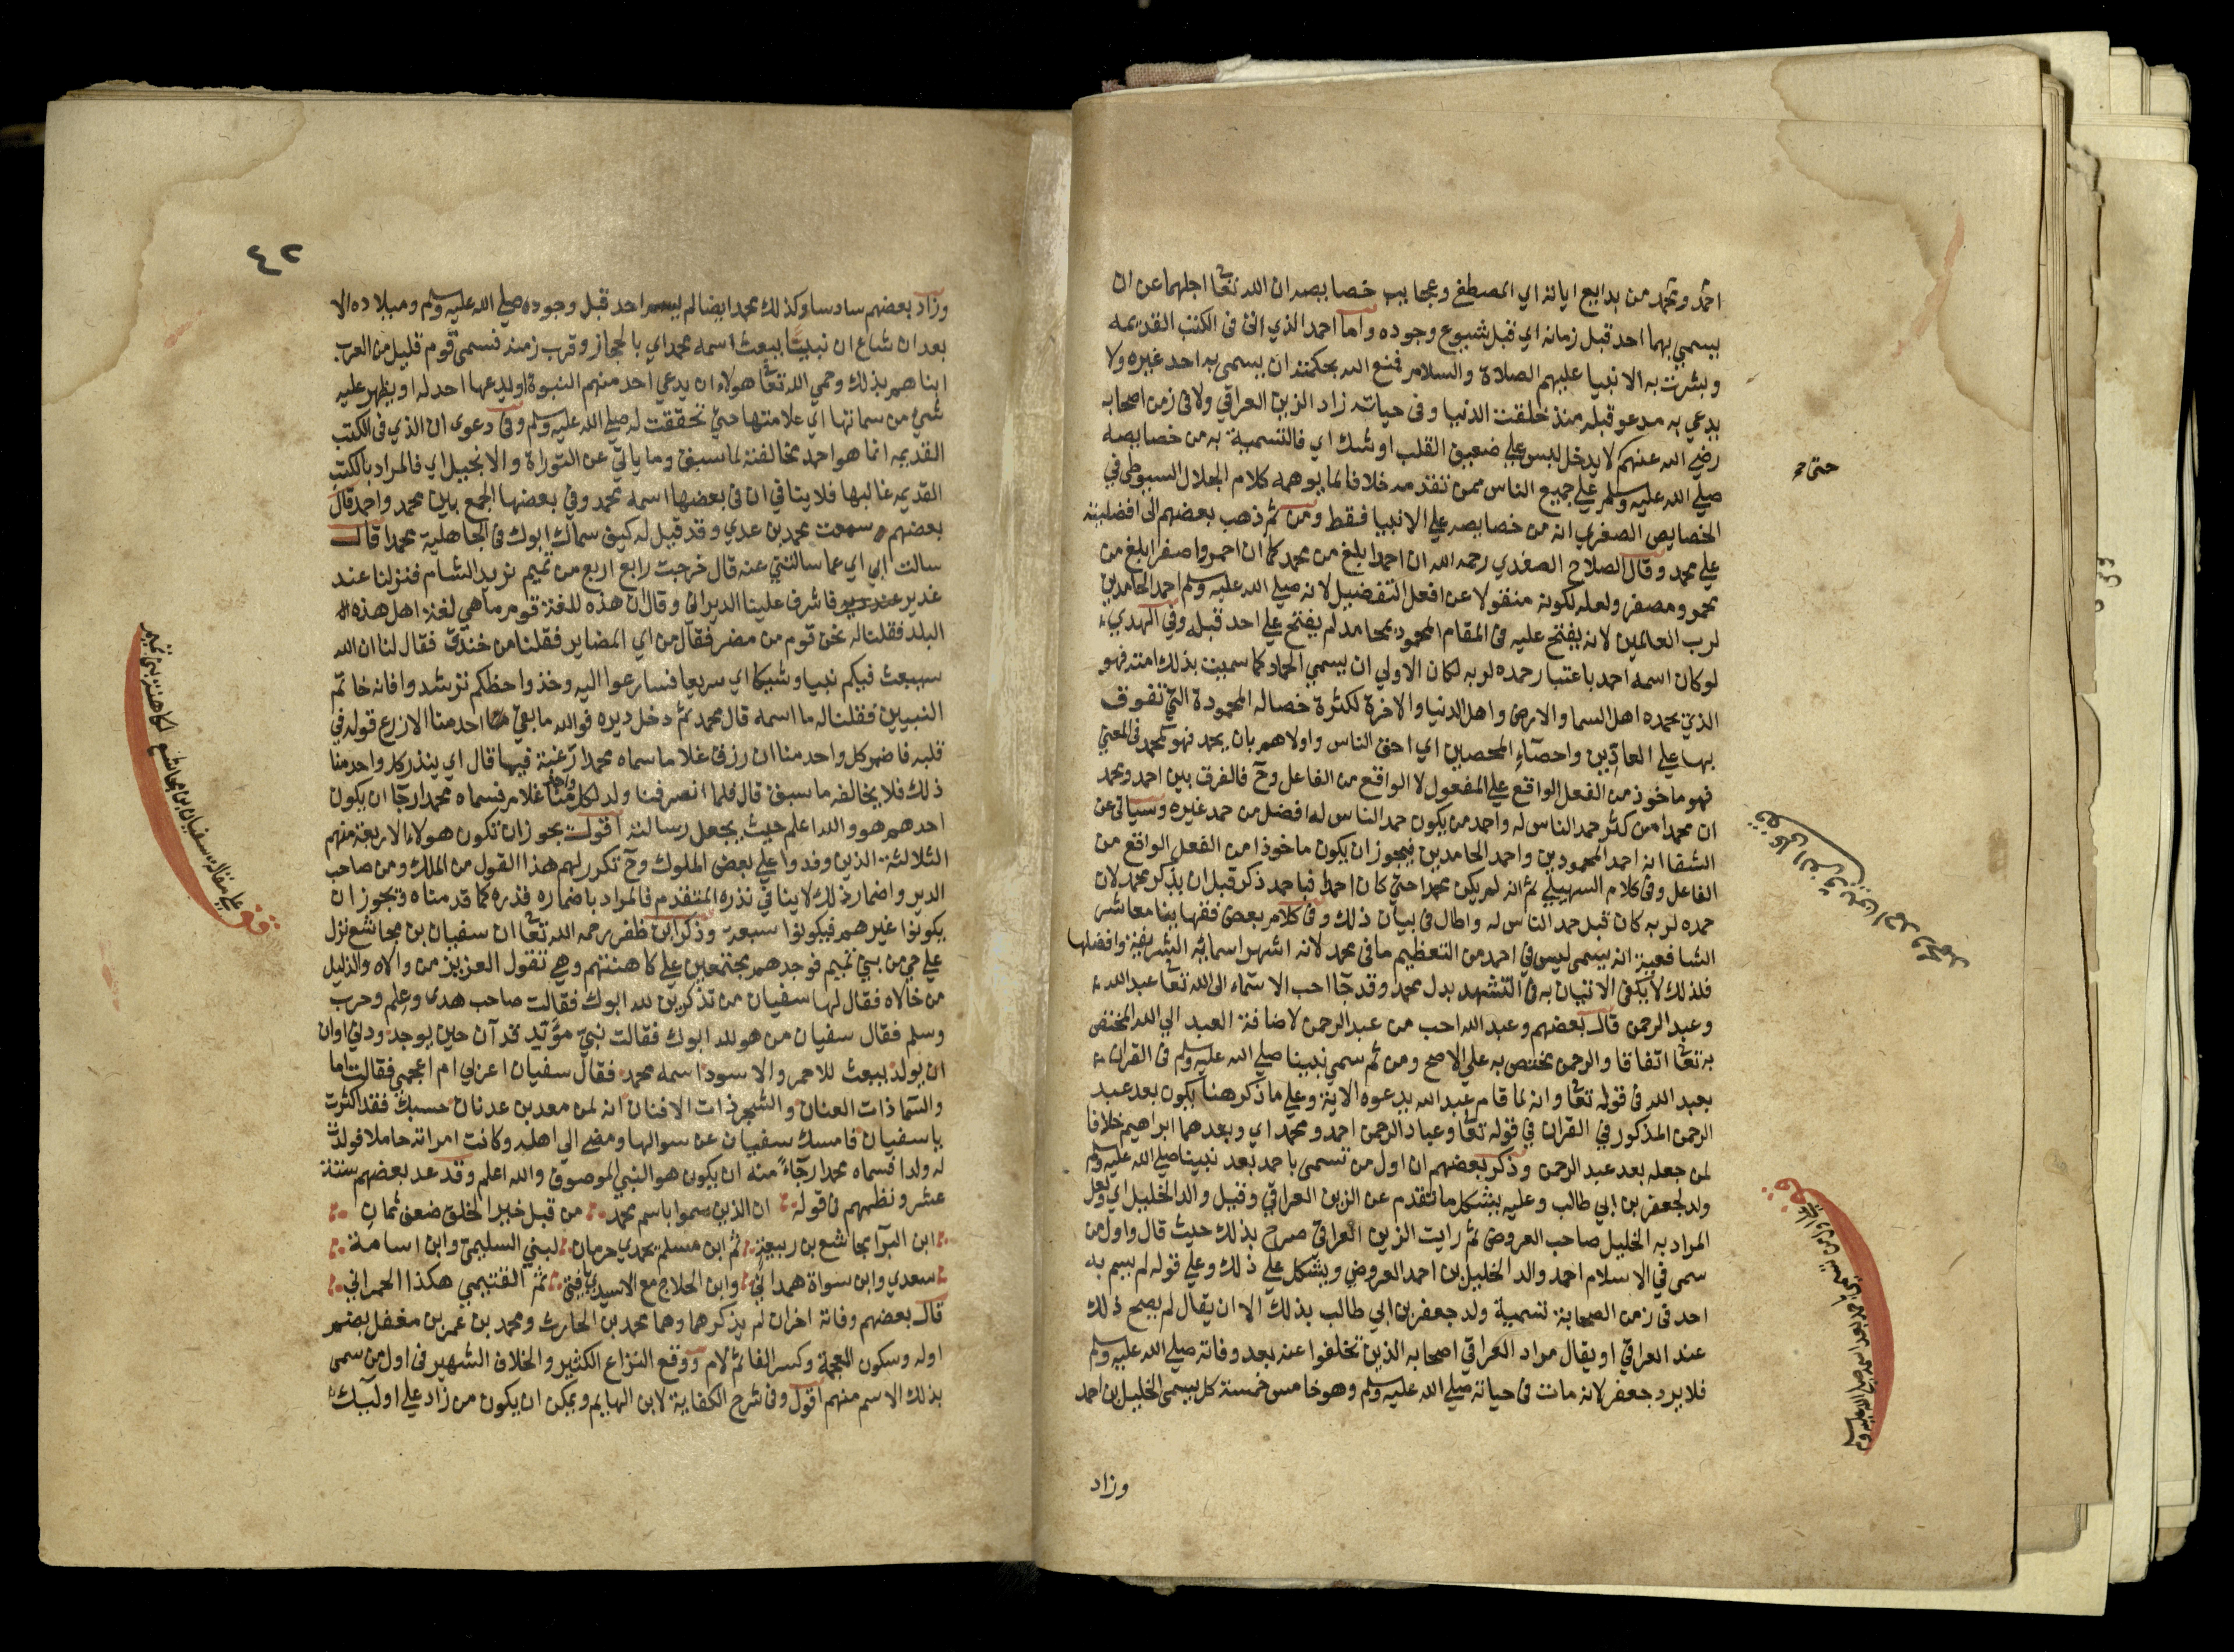 احمد ومحمد من بدايع اياته اي المصطفي وعجايب خصايصه ان الله تعا اجلهما عن ان
يسمي بهما احد قبل زمانه اي قبل شيوع وجوده واما احمد الذي اتى في الكتب القديمه
وبشرت به الانبيا عليهم الصلاة والسلام فمنع الله بحكمته ان يسمى به احد غيره ولا
يدعي به مدعو قبله منذ خلقت الدنيا وفي حياته زاد الزين العراقي ولا في زمن اصحابه
رضي الله عنهم لا يدخل لبس علي ضعيف القلب او شك اي فالتسمية به من خصايصه
حتى
صلي الله عليه وسلم علي جميع الناس ممن تقدمه خلافا لما يوهمه كلام الجلال السيوطي في
الخصايص الصغري انه من خصايصه علي الانبيا فقط ومن ثم ذهب بعضهم الى افضليته
علي محمد وقال الصلاح الصفدي رحمه الله ان احمد ابلغ من محمد كما ان احمر واصفر ابلغ من
محمر ومصفر ولعله لكونه منقولا عن افعل التفضيل لانه صلي الله عليه وسلم احمد الحامدين
لرب العالمين لانه يفتح عليه في المقام المحمود بمحامد لم يفتح علي احد قبله وفي الهدي
لو كان اسمه احمد باعتبار حمده لربه لكان الاولي ان يسمي الحماد كما سميت بذلك امته فهو
الذي يحمده اهل السما والارض واهل الدنيا والاخرة لكثرة خصاله المحمودة التي تفوق
بها علي العادين واحصاء المحصين اي احق الناس واولاهم بان يحمد فهو كمحمد في المعني
فهو ماخوذ من الفعل الواقع علي المفعول لا الواقع من الفاعل وح فالفرق بين احمد ومحمد
ان محمدا من كثر حمد الناس له واحمد من يكون حمد الناس له افضل من حمد غيره وسياتي عن
الشفا انه احمد المحمودين واحمد الحامدين فيجوز ان يكون ماخوذا من الفعل الواقع من
الفاعل وفي كلام السهيلي ثم انه لم يكن محمدا حتي كان احمد فباحمد ذكر قبل ان يذكر بمحمد لان
حمده لربه كان قبل حمد الناس له واطال في بيان ذلك وفي كلام بعض فقهاينا معاشر
الشافعية انه يسمى ليس في احمد من التعظيم ما في محمد لانه اشهر اسمائه الشريفة وافضلها
فلذلك لا يكفي الاتيان به في التشهد بدل محمد وقد جاء احب الاسماء الى الله تعا عبد الله
وعبد الرحمن قال بعضهم وعبد الله احب من عبد الرحمن لاضافة العبد الي الله المختص
به تعا اتفاقا والرحمن مختص به علي الاصح ومن ثم سمي نبينا صلي الله عليه وسلم في القران
بعبد الله في قوله تعا وانه لما قام عبد الله يدعوه الاية وعلي ما ذكر هنا يكون بعد عبد
الرحمن المذكور في القران في قوله تعا وعباد الرحمن احمد ومحمد اي وبعدهما ابراهيم خلافا
لمن جعله بعد عبد الرحمن وذكر بعضهم ان اول من تسمى باحمد بعد نبينا صلي الله عليه وسلم
ولد لجعفر بن ابي طالب وعليه يشكل ما تقدم عن الزين العراقي وقيل والد الخليل اي ولعل
المراد به الخليل صاحب العروض ثم رايت الزين العراقي صرح بذلك حيث قال واول من
سمى في الاسلام احمد والد الخليل بن احمد العروضي ويشكل علي ذلك وعلي قوله لم يسم به
احد في زمن الصحابة تسمية ولد جعفر بن ابي طالب بذلك الا ان يقال لم يصح ذلك
عند العراقي او يقال مراد العراقي اصحابه الذين تخلفوا عنه بعد وفاته صلي الله عليه وسلم
فلا يرد جعفر لانه مات في حياته صلي الله عليه وسلم وهو خامس خمسة كل يسمي الخليل بن احمد
وزاد
٤٢
وزاد بعضهم سادسا وكذلك محمد ايضا لم يسم احد قبل وجوده صلي الله عليه وسلم وميلاده الا
بعد ان شاع ان نبيا يبعث اسمه محمد اي بالحجاز وقرب زمنه فسمى قوم قليل من العرب
ابناهم بذلك وحمي الله تعا هولاء ان يدعي احد منهم النبوة او يدعيها احد له او يظهر عليه
شي من سماتها اي علامتها حتي تحققت له صلي الله عليه وسلم وفي دعوى ان الذي في الكتب
القديمه انما هو احمد مخالفة لما سبق وما ياتي عن التوراة والانجيل اي فالمراد بالكتب
القديمه غالبها فلا ينافي ان في بعضها اسمه محمد وفي بعضها الجمع بين محمد واحمد قال
بعضهم سمعت محمد بن عدي وقد قيل له كيف سماك ابوك في الجاهلية محمدا قال
سالت ابي اي عما سالتني عنه قال خرجت رابع اربع من تميم نريد الشام فنزلنا عند
غدير عند دير فاشرف علينا الديراني وقال ان هذه للغة قوم ما هي لغة اهل هذه
البلد فقلنا له نحن قوم من مضر فقال من اي المضاير فقلنا من خندق فقال لنا ان الله
سيبعث فيكم نبيا وشيكا اي سريعا فسارعوا اليه وخذوا حظكم ترشدوا فانه خاتم
النبيين فقلنا له ما اسمه قال محمد ثم دخل ديره فوالله ما بقي احد منا الا زرع قوله في
قلبه فاضمر كل واحد منا ان رزق غلاما سماه محمدا رغبة فيما قال اي ينذر كل واحد منا
ذلك فلا يخالف ما سبق قال فلما انصرفنا ولد لكل واحد منا غلام فسماه محمدا رجآ ان يكون
احدهم هو والله اعلم حيث يجعل رسالته اقول يجوز ان تكون هولاء الاربعة منهم
الثلاثة الذين وفدوا علي بعض الملوك وح تكرر لهم هذا القول من الملك ومن صاحب
الدير واضمار ذلك لا ينافي نذره المتقدم فالمراد باضماره نذره كما قدمناه ويجوز ان
يكونوا غيرهم فيكونوا سبعة وذكر ابن ظفر رحمه الله تعا ان سفيان بن مجاشع نزل
علي حي من بني تميم فوجدهم مجتمعين علي كاهنتهم وهي تقول العزيز من والاه والذليل
من خالاه فقال لها سفيان من تذكرين لله ابوك فقالت صاحب هدي وعلم وحرب
وسلم فقال سفيان من هو لله ابوك فقالت نبي مؤيد قد آن حين يوجد ودني اوان
ان يولد يبعث للاحمر والاسود اسمه محمد فقال سفيان اعربي ام اعجمي فقالت اما
والسما ذات العنان والشجر ذات الافنان انه لمن معد بن عدنان حسبك فقد اكثرت
يا سفيان فامسك سفيان عن سوالها ومضي الي اهله وكانت امراته حاملا فولدت
له ولدا فسماه محمدا رجآء منه ان يكون هو النبي الموصوف والله اعلم وقد عد بعضهم ستة
عشر ونظمهم في قوله ان الذين سموا باسم محمد من قبل خير الخلق ضعف ثمان
ابن البرا مجاشع بن ربيعة ثم ابن مسلم يحمدي حرمان لبني السليمي وابن اسامة
سعدي وابن سواة همداني وابن الحلاج مع الاسيدي فتى ثم الفتيمي هكذا الحمراني
قال بعضهم وفاته اخران لم يذكرهما وهما محمد بن الحارث ومحمد بن عمر بن مغفل بضم
اوله وسكون المعجمة وكسر الفا ثم لام ووقع النزاع الكثير والخلاف الشهير في اول من سمى
بذلك الاسم منهم اقول وفي شرح الكفاية لابن الهايم ويمكن ان يكون من زاد علي اوليك
قف
علي مقالة سفيان بن مجاشع لكاهنة بني تميم